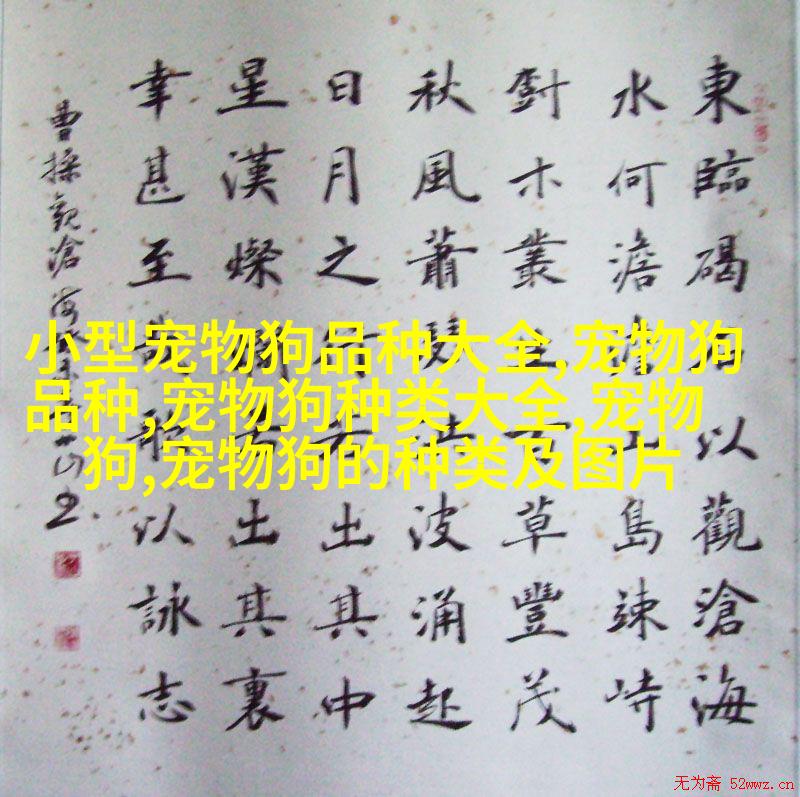 東臨碣石以觀滄海
水何澹澹山島竦峙
木叢生百草豐茂
秋風蕭瑟洪波涌起
日月之行若出其中
星漢燦爛若出其裏
幸甚至哉歌以詠志
曹操觀滄海
小型宠物狗品种大全,宠物狗
品种,宠物狗种类大全,宠物
狗,宠物狗的种类及图片
无为斋 52wwz.cn